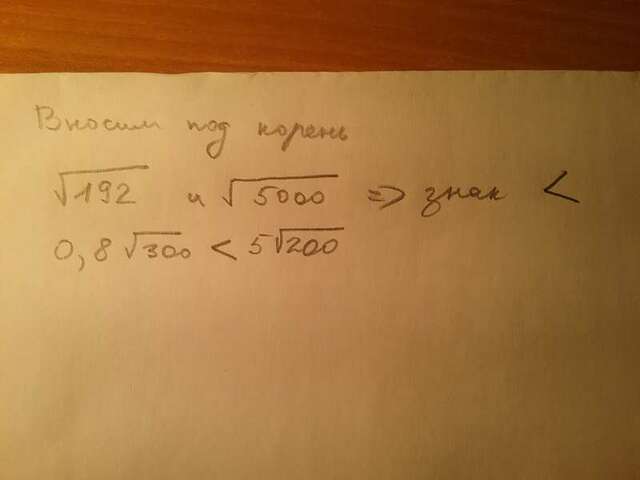 Вносим под корень
√192 и √5000 => знак <
0,8√300 < 5√200